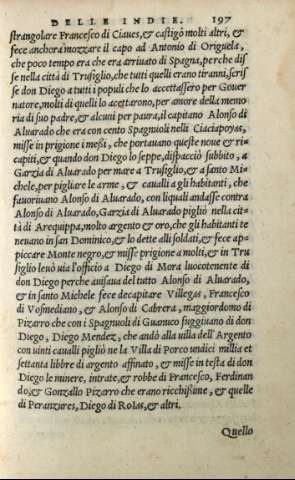 DELLE INDIE. 197
strangolare Francesco di Ciaues, & castigò molti altri, &
fece anchora mozzare il capo ad Antonio di Origuela,
che poco tempo era che era arriuato di Spagna, perche disse
se nella città di Trusiglio, che tutti quelli erano tiranni, scris
se don Diego a tutti i populi che lo accettassero per Gouer
natore, molti di quelli lo accettarono, per amore della memo
ria di suo padre, & alcuni per paura, il capitano Alonso di
Aluarado che era con cento Spagnuoli nelli Ciaciapoyas,
misse in prigione i messi, che portauano queste noue & ri=
capiti, & quando don Diego lo seppe, dispacciò subbito, a
Garzia di Aluarado per mare a Trusiglio, & a santo Mi=
chele, per pigliare le arme, & caualli a gli habitanti, che
fauoriuano Alonso di Aluarado, con liquali andasse contra
Alonso di Aluarado, Garzia di Aluarado pigliò nella cit=
tà di Arequippa, molto argento & oro, che gli habitanti te
neuano in san Dominico, & lo dette alli soldati, & fece ap=
piccare Monte negro, & misse prigione a molti, & in Tru
siglio leuò uia l'officio a Diego di Mora luocotenente di
don Diego perche auisaua del tutto Alonso di Aluarado,
& in santo Michele fece decapitare Villegas, Francesco
di Vosmediano, & Alonso di Cabrera, maggiordomo di
Pizarro che con i Spagnuoli di Guanuco fuggiuano di don
Diego, Diego Mendez, che andò alla uilla dell'Argento
con uinti caualli pigliò ne la Villa di Porco undici millia et
settanta libbre di argento affinato, & misse in testa di don
Diego le minere, intrate, & robbe di Francesco, Ferdinan
do, & Gonzallo Pizarro che erano ricchissime, & quelle
di Peranzures, Diego di Rosas, & altri.
Quello